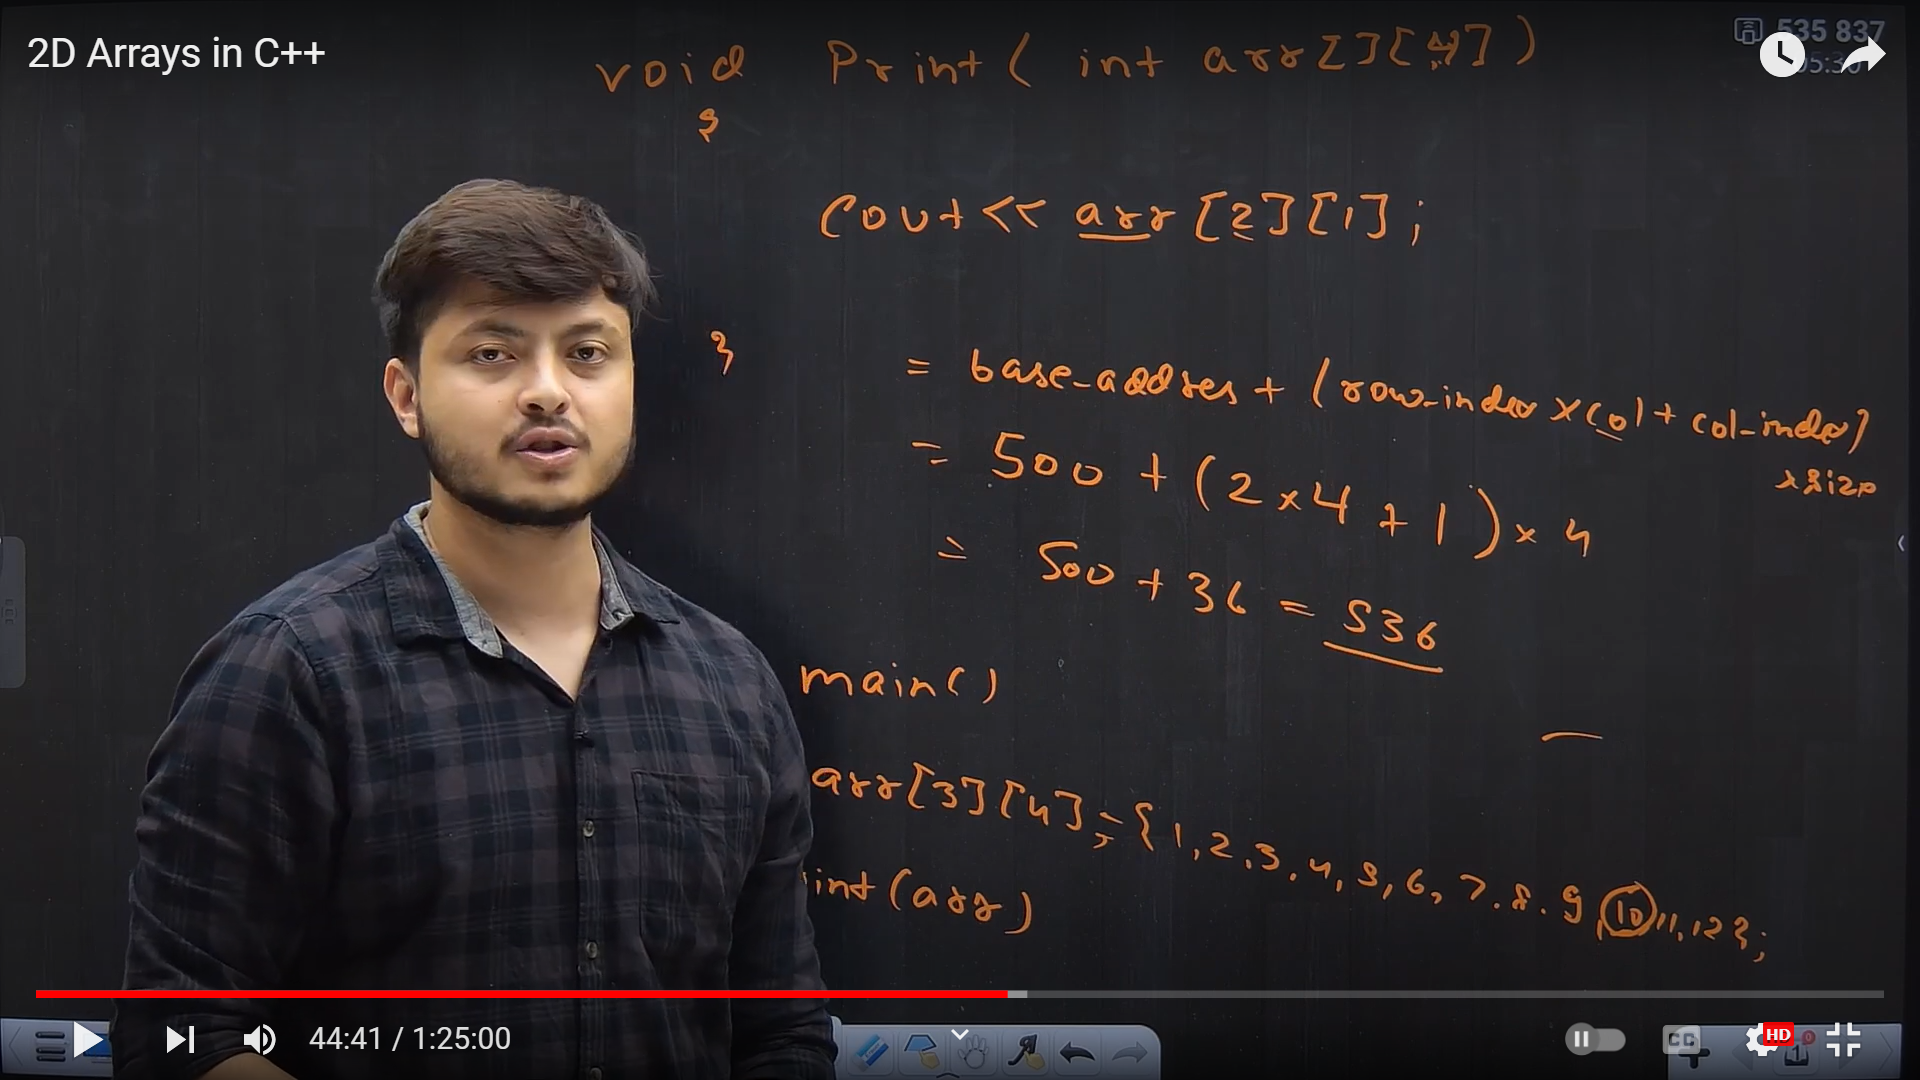 2D Arrays in C++
535 837
05:30
void Print( int arr[][4])
{
Cout<< arr[2][1];
}
= base-addres + (row-index x col + col-index)
x size
= 500 + (2x4 + 1) x 4
= 500 + 36 = 536
main()
arr[3][4];= {1,2,3,4,5,6,7,8,9,10,11,12};
int(arr)
44:41 / 1:25:00
CC
HD